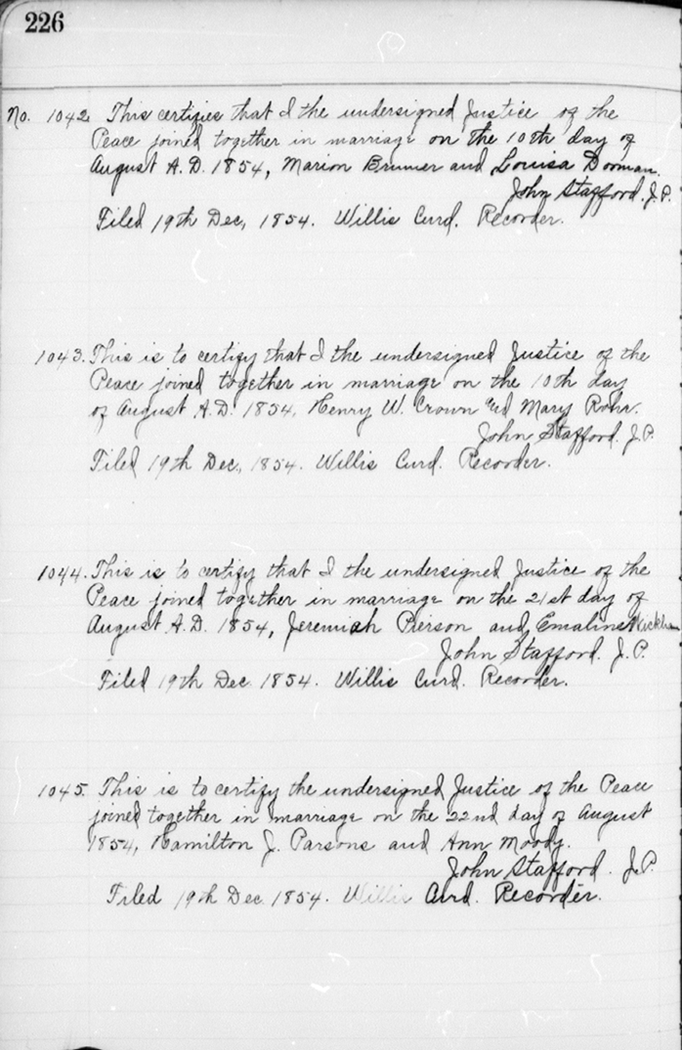 226
No. 1042 This certifies that I the undersigned Justice of the
Peace joined together in marriage on the 10th day of
August A.D. 1854, Marion Brumer and Louisa Dorman.
John Stafford. J.P.
Filed 19th Dec, 1854. Willis Curd. Recorder.
1043. This is to certify that I the undersigned Justice of the
Peace joined together in marriage on the 10th day
of August A.D. 1854, Henry W. Crown and Mary Rohr.
John Stafford. J.P.
Filed 19th Dec, 1854. Willis Curd. Recorder.
1044. This is to certify that I the undersigned Justice of the
Peace joined together in marriage on the 21st day of
August A.D. 1854, Jeremiah Pierson and Emaline Wickham
John Stafford. J.P.
Filed 19th Dec 1854. Willis Curd. Recorder.
1045. This is to certify the undersigned Justice of the Peace
joined together in marriage on the 22nd day of August
1854, Hamilton J. Parsons and Ann Moody.
John Stafford. J.P.
Filed 19th Dec 1854. Willis Curd. Recorder.